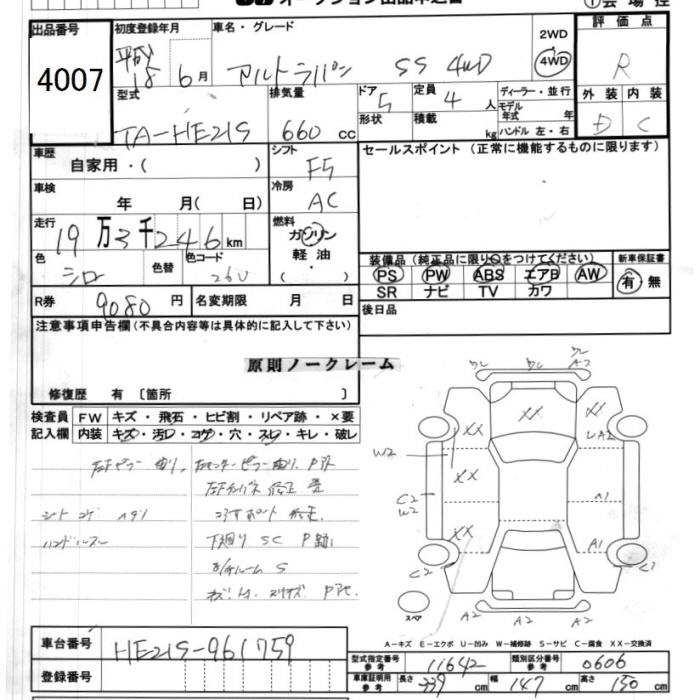 オークション出品申込書
出品番号 4007
初度登録年月 平成 18年 6月
車名・グレード アルトラパン SS 4WD
2WD 4WD
評価点 R
外装 内装
D C
型式 TA-HE21S
排気量 660 cc
ドア 5
定員 4 人
形状
積載 kg
ディーラー・並行
モデル年式 年
ハンドル 左・右
車歴 自家用・( )
シフト F5
セールスポイント(正常に機能するものに限ります)
車検 年 月( 日)
冷房 AC
走行 19万3千246km
燃料 ガソリン 軽油・
色 シロ 色替 色コード 26U
装備品(純正品に限り○をつけてください) 新車保証書
PS PW ABS エアB AW 有・無
SR ナビ TV カワ
R券 9080円 名変期限 月 日
後日品
注意事項申告欄(不具合内容等は具体的に記入して下さい)
原則ノークレーム
修復歴 有〔箇所 〕
検査員 FW キズ・飛石・ヒビ割・リペア跡・×要
記入欄 内装 キズ・汚レ・コゲ・穴・スレ・キレ・破レ
シートコゲ
ハンドルスレ
下廻りSC
W2 XX XX XX XX
A2 A2 A1 A1
C2 W2 C2 C1
A2 A2 A2
スペア
A-キズ E-エクボ U-凹み W-補修跡 S-サビ C-腐食 XX-交換済
車台番号 HE21S-961759
登録番号
型式指定番号 参考 11642 類別区分番号 参考 0606
車庫証明用 参考 長さ 339 cm 幅 147 cm 高さ 150 cm